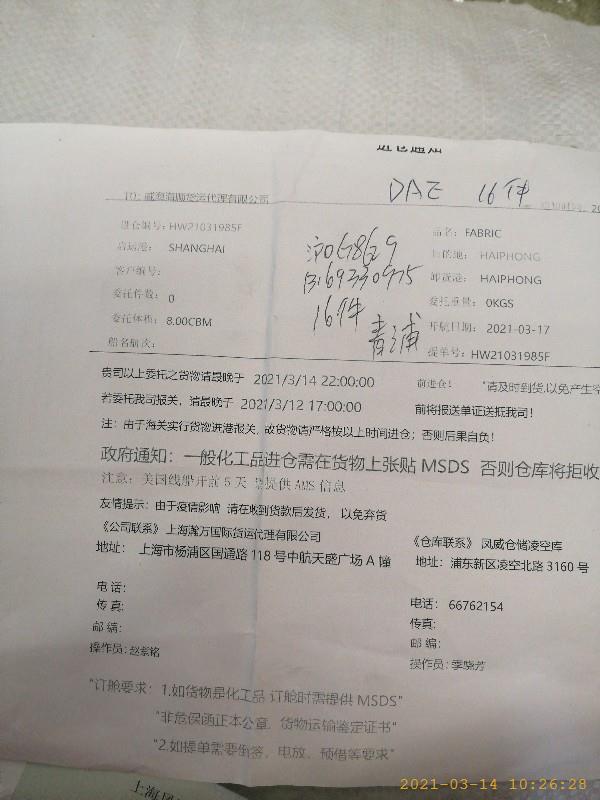 进仓通知
DAE 16件
TO: 威海海顺货运代理有限公司
进仓编号: HW21031985F
品名: FABRIC
启运港: SHANGHAI
目的地: HAIPHONG
客户编号:
卸货港: HAIPHONG
委托件数: 0
委托重量: 0KGS
委托体积: 8.00CBM
开航日期: 2021-03-17
船名航次:
提单号: HW21031985F
16件
青浦
贵司以上委托之货物请最晚于 2021/3/14 22:00:00 前进仓! "请及时到货,以免产生
若委托我司报关, 请最晚于 2021/3/12 17:00:00 前将报送单证送抵我司!
注: 由于海关实行货物进港报关, 故货物请严格按以上时间进仓; 否则后果自负!
政府通知: 一般化工品进仓需在货物上张贴 MSDS 否则仓库将拒收
注意: 美国线船开前 5 天 提供 AMS 信息
友情提示: 由于疫情影响 请在收到货款后发货, 以免弃货
《公司联系》上海瀚万国际货运代理有限公司
《仓库联系》 凤威仓储凌空库
地址: 上海市杨浦区国通路 118 号中航天盛广场 A 幢
地址: 浦东新区凌空北路 3160 号
电话:
电话: 66762154
传真:
传真:
邮编:
邮编:
操作员: 赵紫铭
操作员: 季晓芳
"订舱要求: 1.如货物是化工品 订舱时需提供 MSDS"
"非危保函正本公章, 货物运输鉴定证书"
"2.如提单需要倒签, 电放, 预借等要求"
2021-03-14 10:26:28